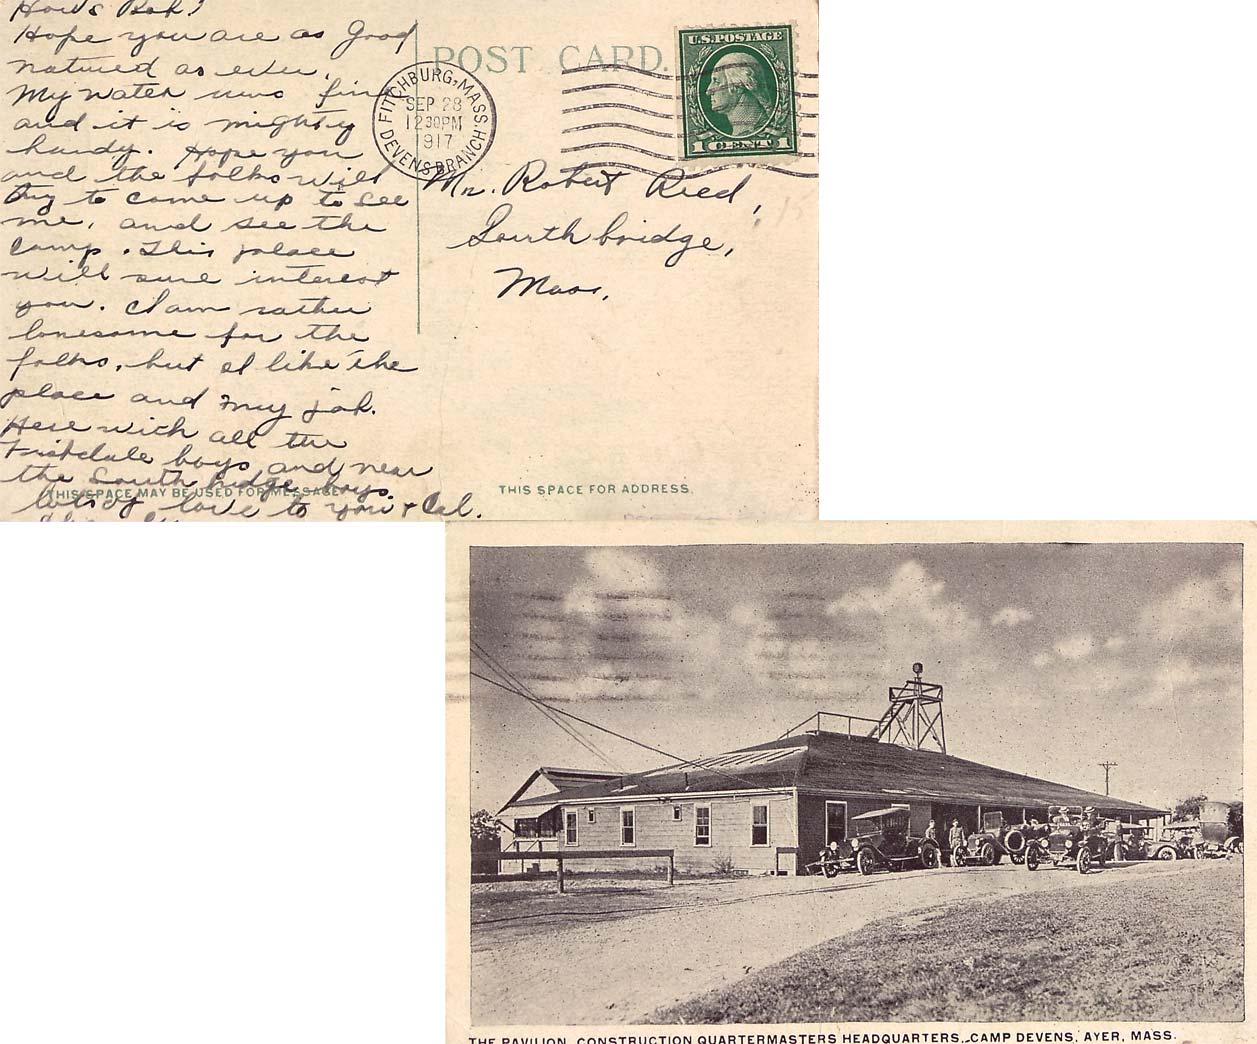 How's Bob?
Hope you are as good
natured as ever.
My watch runs fine
and it is mighty
handy. Hope you
and the folks will
try to come up to see
me, and see the
camp. This place
will sure interest
you. I am rather
lonesome for the
folks, but I like the
place and my job.
Here with all the
Fiskdale boys and near
the Southbridge boys.
Lots of love to you & Cal.
THIS SPACE MAY BE USED FOR MESSAGE.
POST CARD.
FITCHBURG, MASS.
SEP 28
12 30 PM
1917
DEVENS BRANCH'S
U.S. POSTAGE
1 CENT 1
Mr. Robert Reed,
Southbridge,
Mass.
15
THIS SPACE FOR ADDRESS.
THE PAVILION, CONSTRUCTION QUARTERMASTERS HEADQUARTERS, CAMP DEVENS, AYER, MASS.